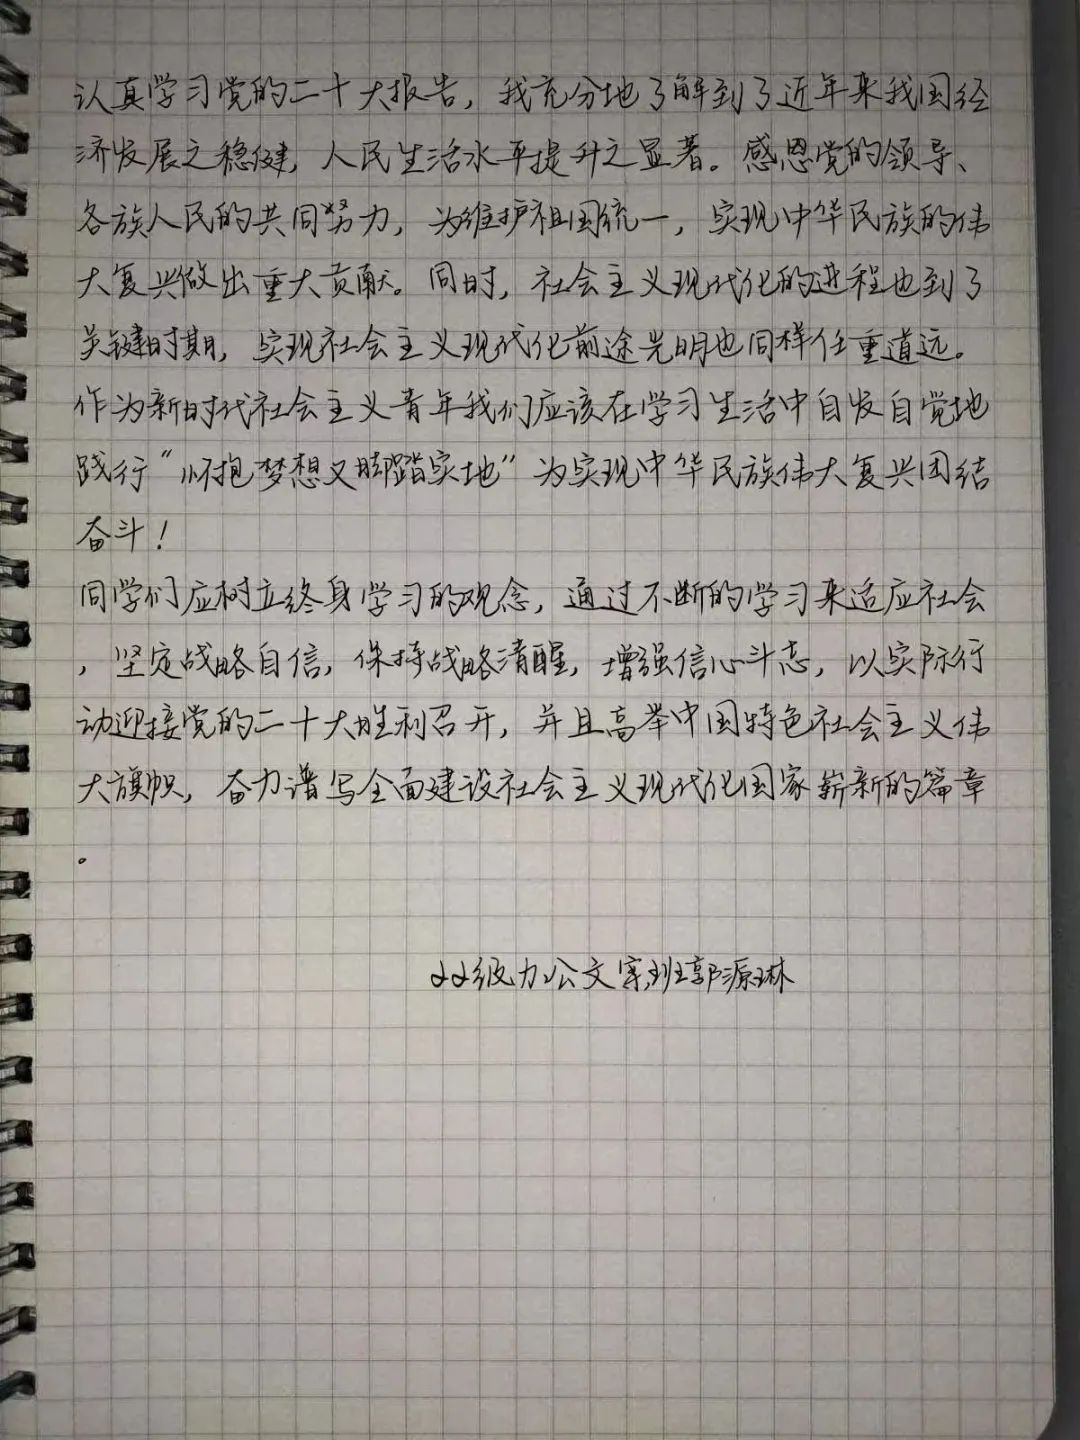 认真学习党的二十大报告，我充分地了解到了近年来我国经
济发展之稳健，人民生活水平提升之显著。感恩党的领导、
各族人民的共同努力，为维护祖国统一，实现中华民族的伟
大复兴做出重大贡献。同时，社会主义现代化的进程也到了
关键时期，实现社会主义现代化前途光明也同样任重道远。
作为新时代社会主义青年我们应该在学习生活中自发自觉地
践行“怀抱梦想又脚踏实地”为实现中华民族伟大复兴团结
奋斗！
同学们应树立终身学习的观念，通过不断的学习来适应社会
，坚定战略自信，保持战略清醒，增强信心斗志，以实际行
动迎接党的二十大胜利召开，并且高举中国特色社会主义伟
大旗帜，奋力谱写全面建设社会主义现代化国家崭新的篇章
。
22级办公文案班郭源琳